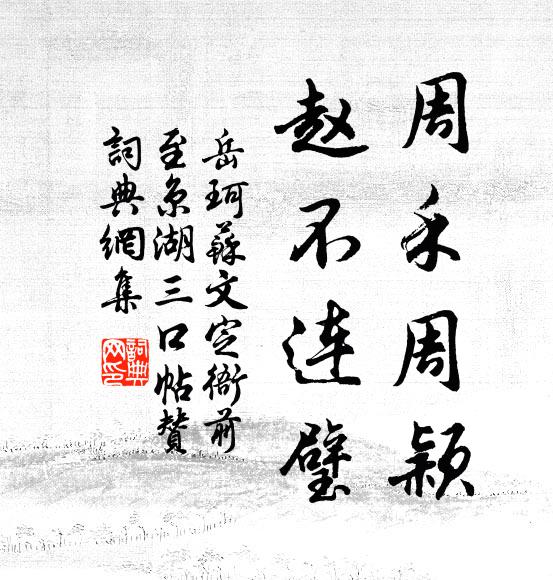 周禾周颖
赵不连璧
岳珂蘇文定衙前
至京湖三口帖贊
詞典網集
詞典网印